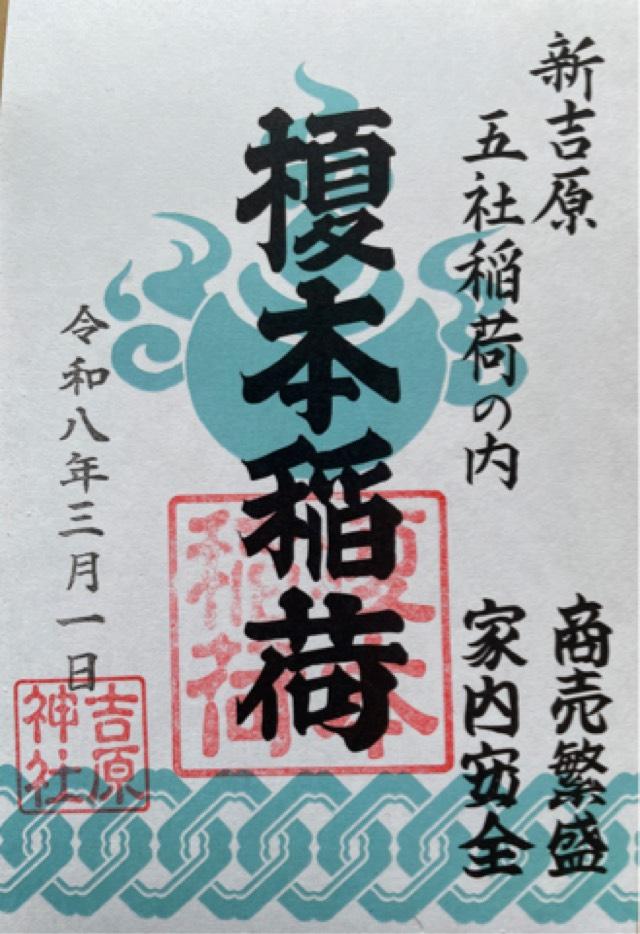 新吉原
五社稲荷の内
商売繁盛
家内安全
榎本稲荷
榎本
稲荷
令和八年三月一日
吉原
神社